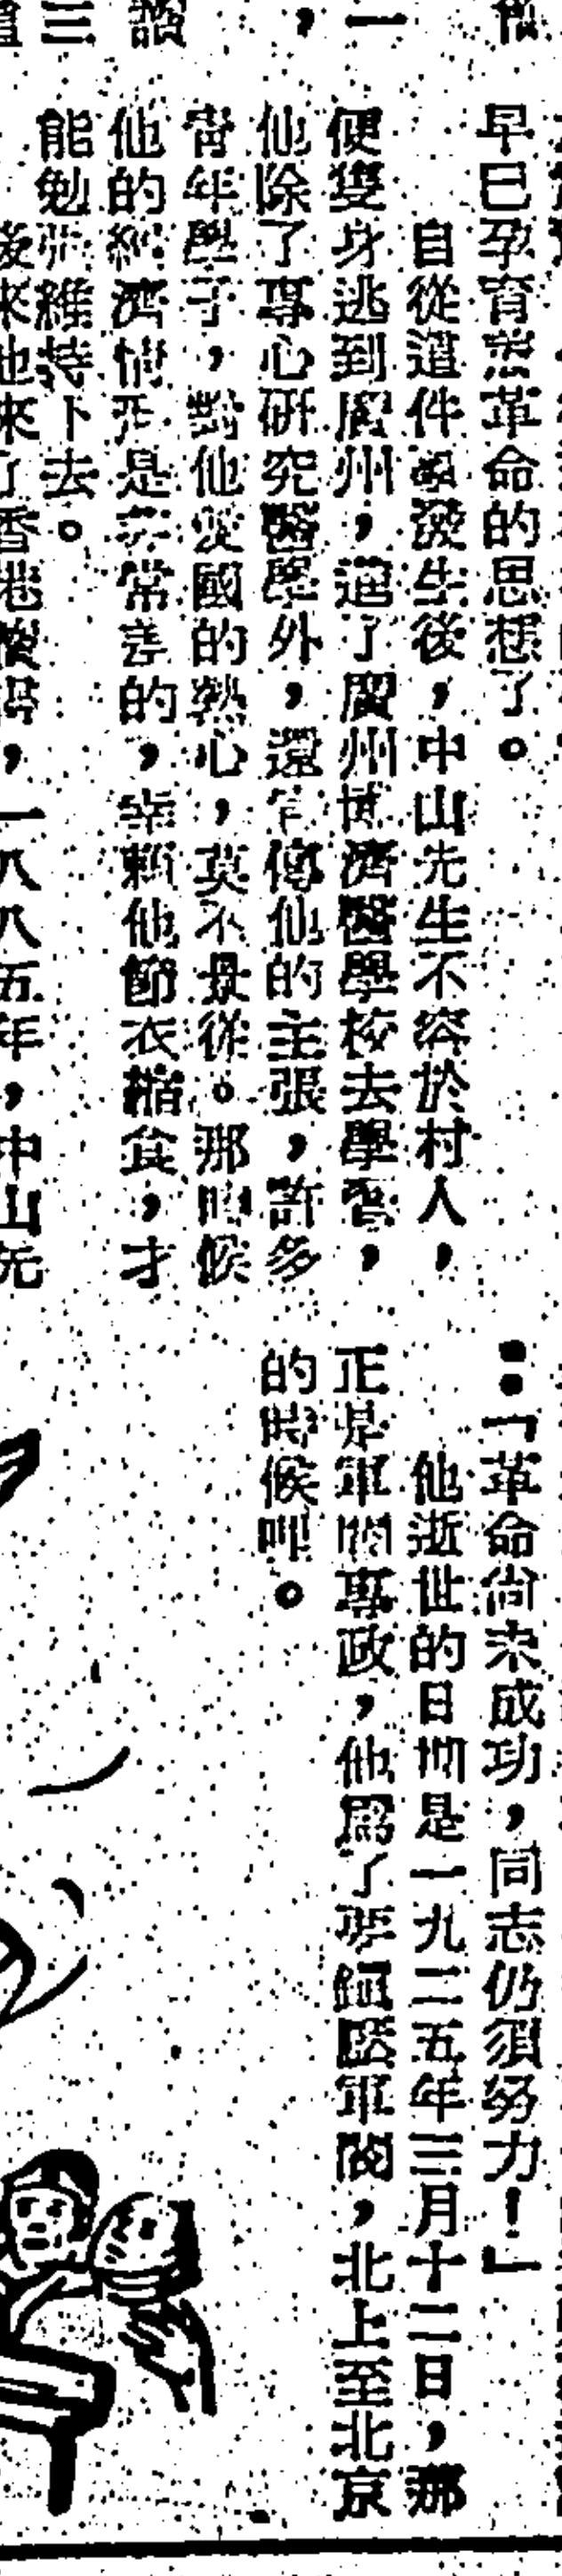 早已孕育着革命的思想了。
自從這件事發生後，中山先生不容於村人，
便隻身逃到廣州，進了廣州博濟醫學校去學習，
他除了專心研究醫學外，還宣傳他的主張，許多
青年學子，對他愛國的熱心，莫不景從。那時候
他的經濟情形是非常差的，幸賴他節衣縮食，才
能勉強維持下去。
後來他來了香港讀書，一八八五年，中山先
：「革命尚未成功，同志仍須努力！」
他逝世的日期是一九二五年三月十二日，那
正是軍閥專政，他爲了要剷除軍閥，北上至北京
的時候哩。